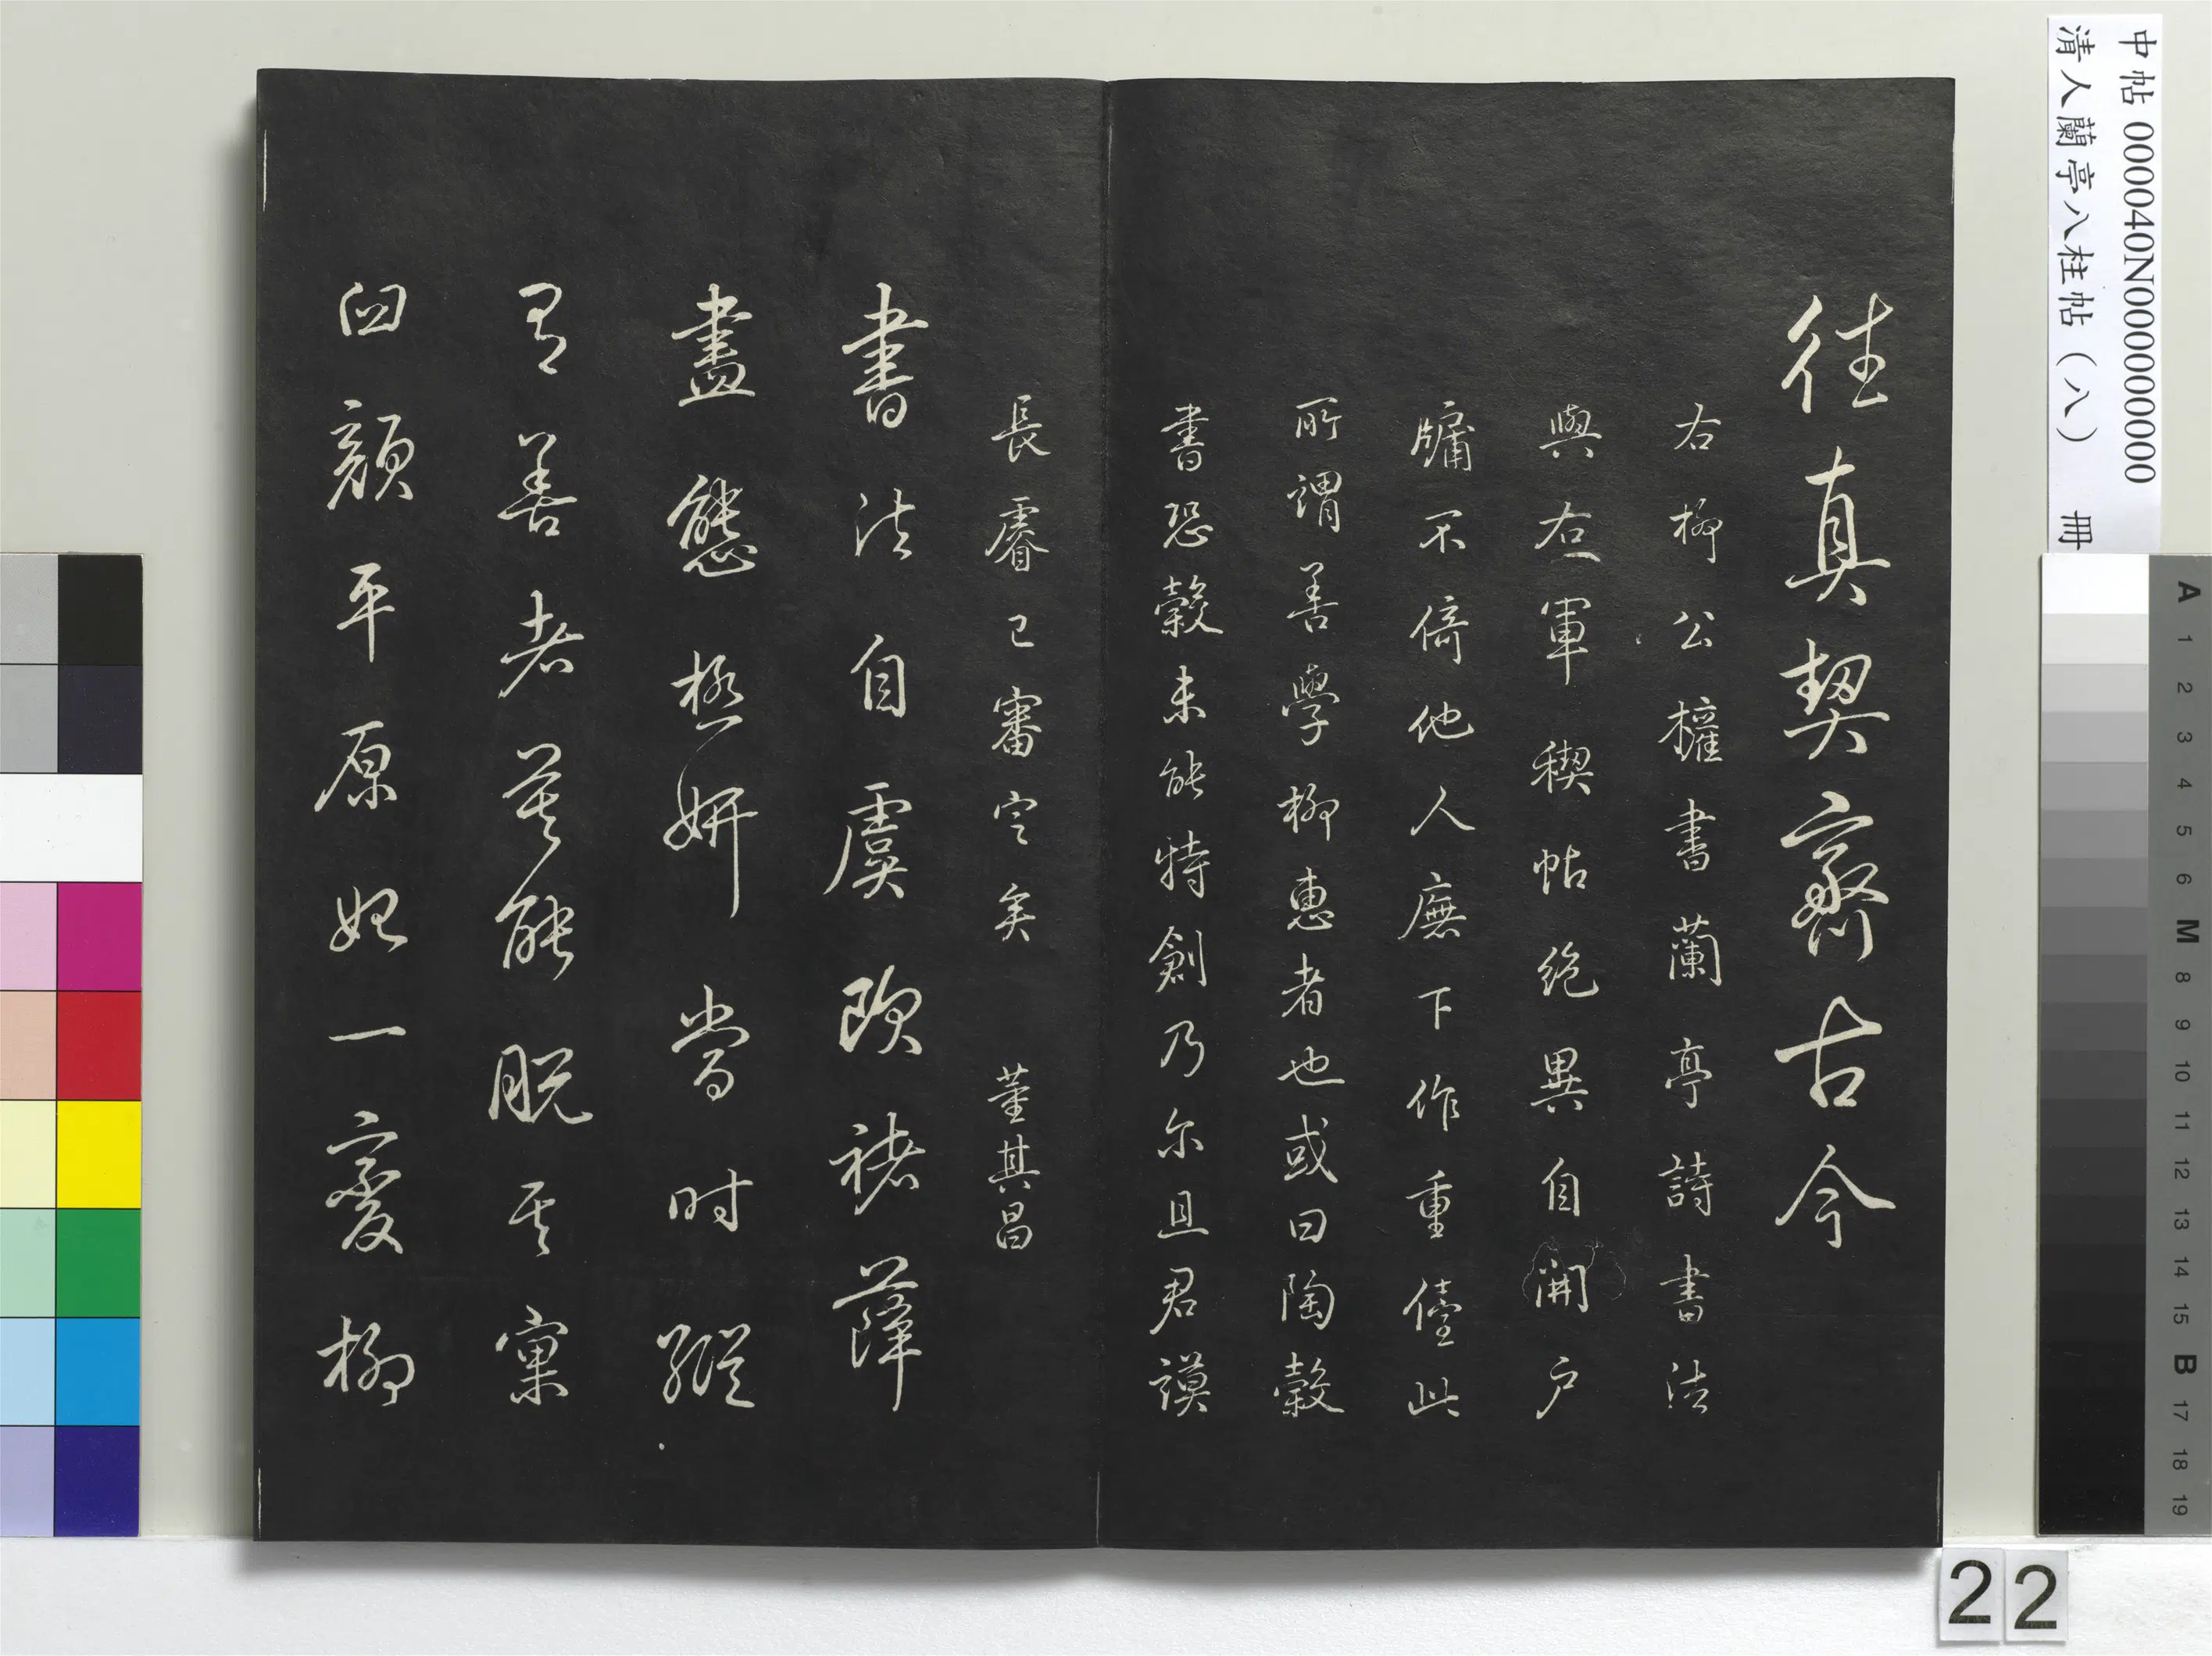 往真契齊古今
右柳公權書蘭亭詩書法
與右軍稧帖絶異自開户
牖不倚他人廡下作重儓此
所謂善學柳惠者也或曰陶穀
書恐穀未能特創乃尔且君謨
長睿已審定矣　董其昌
書法自虞歐褚薛
盡態極妍當時縱
有善者莫能脱其窠
臼顔平原始一變柳
中帖 000040N000000000
清人蘭亭八柱帖（八）　冊
A
1
2
3
4
5
6
M
8
9
10
11
12
13
14
15
B
17
18
19
22